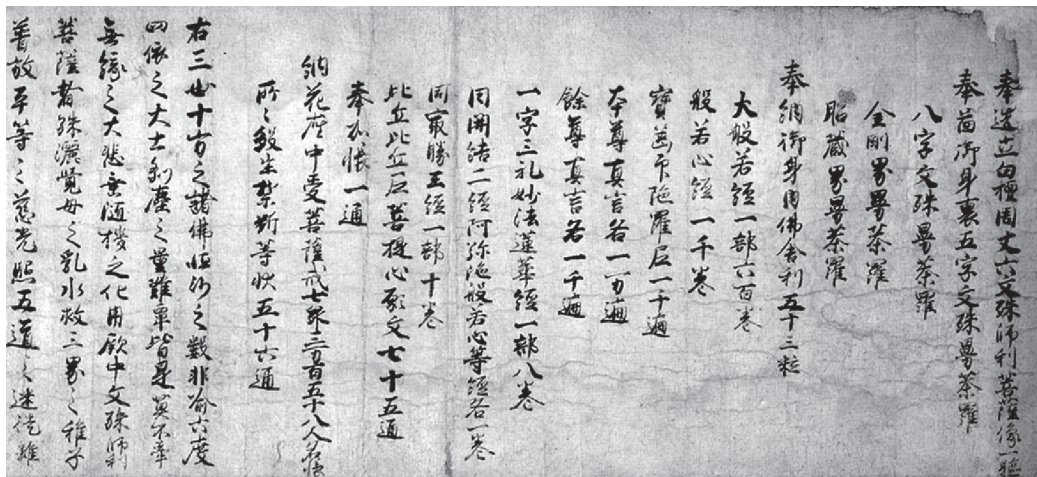 奉造立白檀周丈六文殊師利菩薩像一軀
奉図御身裏五字文殊曼荼羅
八字文殊曼荼羅
金剛界曼荼羅
胎蔵界曼荼羅
奉納御身内佛舎利五十三粒
大般若経一部六百巻
般若心経一千巻
寶篋印陁羅尼一千遍
本尊真言各一万遍
餘尊真言各一千遍
一字三礼妙法蓮華経一部八巻
同開結二経阿弥陁般若心等経各一巻
同最勝王経一部十巻
比丘比丘尼菩提心願文七十五通
奉加帳一通
納花座中受菩薩戒七衆二万二百五十八人名帳
所々殺生禁断等状五十六通
右三世十方之諸佛恒沙之数非喩六度
四依之大士刹塵之量難罩皆是莫不率
無縁之大悲垂随機之化用厥中文殊師利
菩薩者殊灑覚母之乳水救三界之稚子
普放平等之慈光照五道之迷徒雖